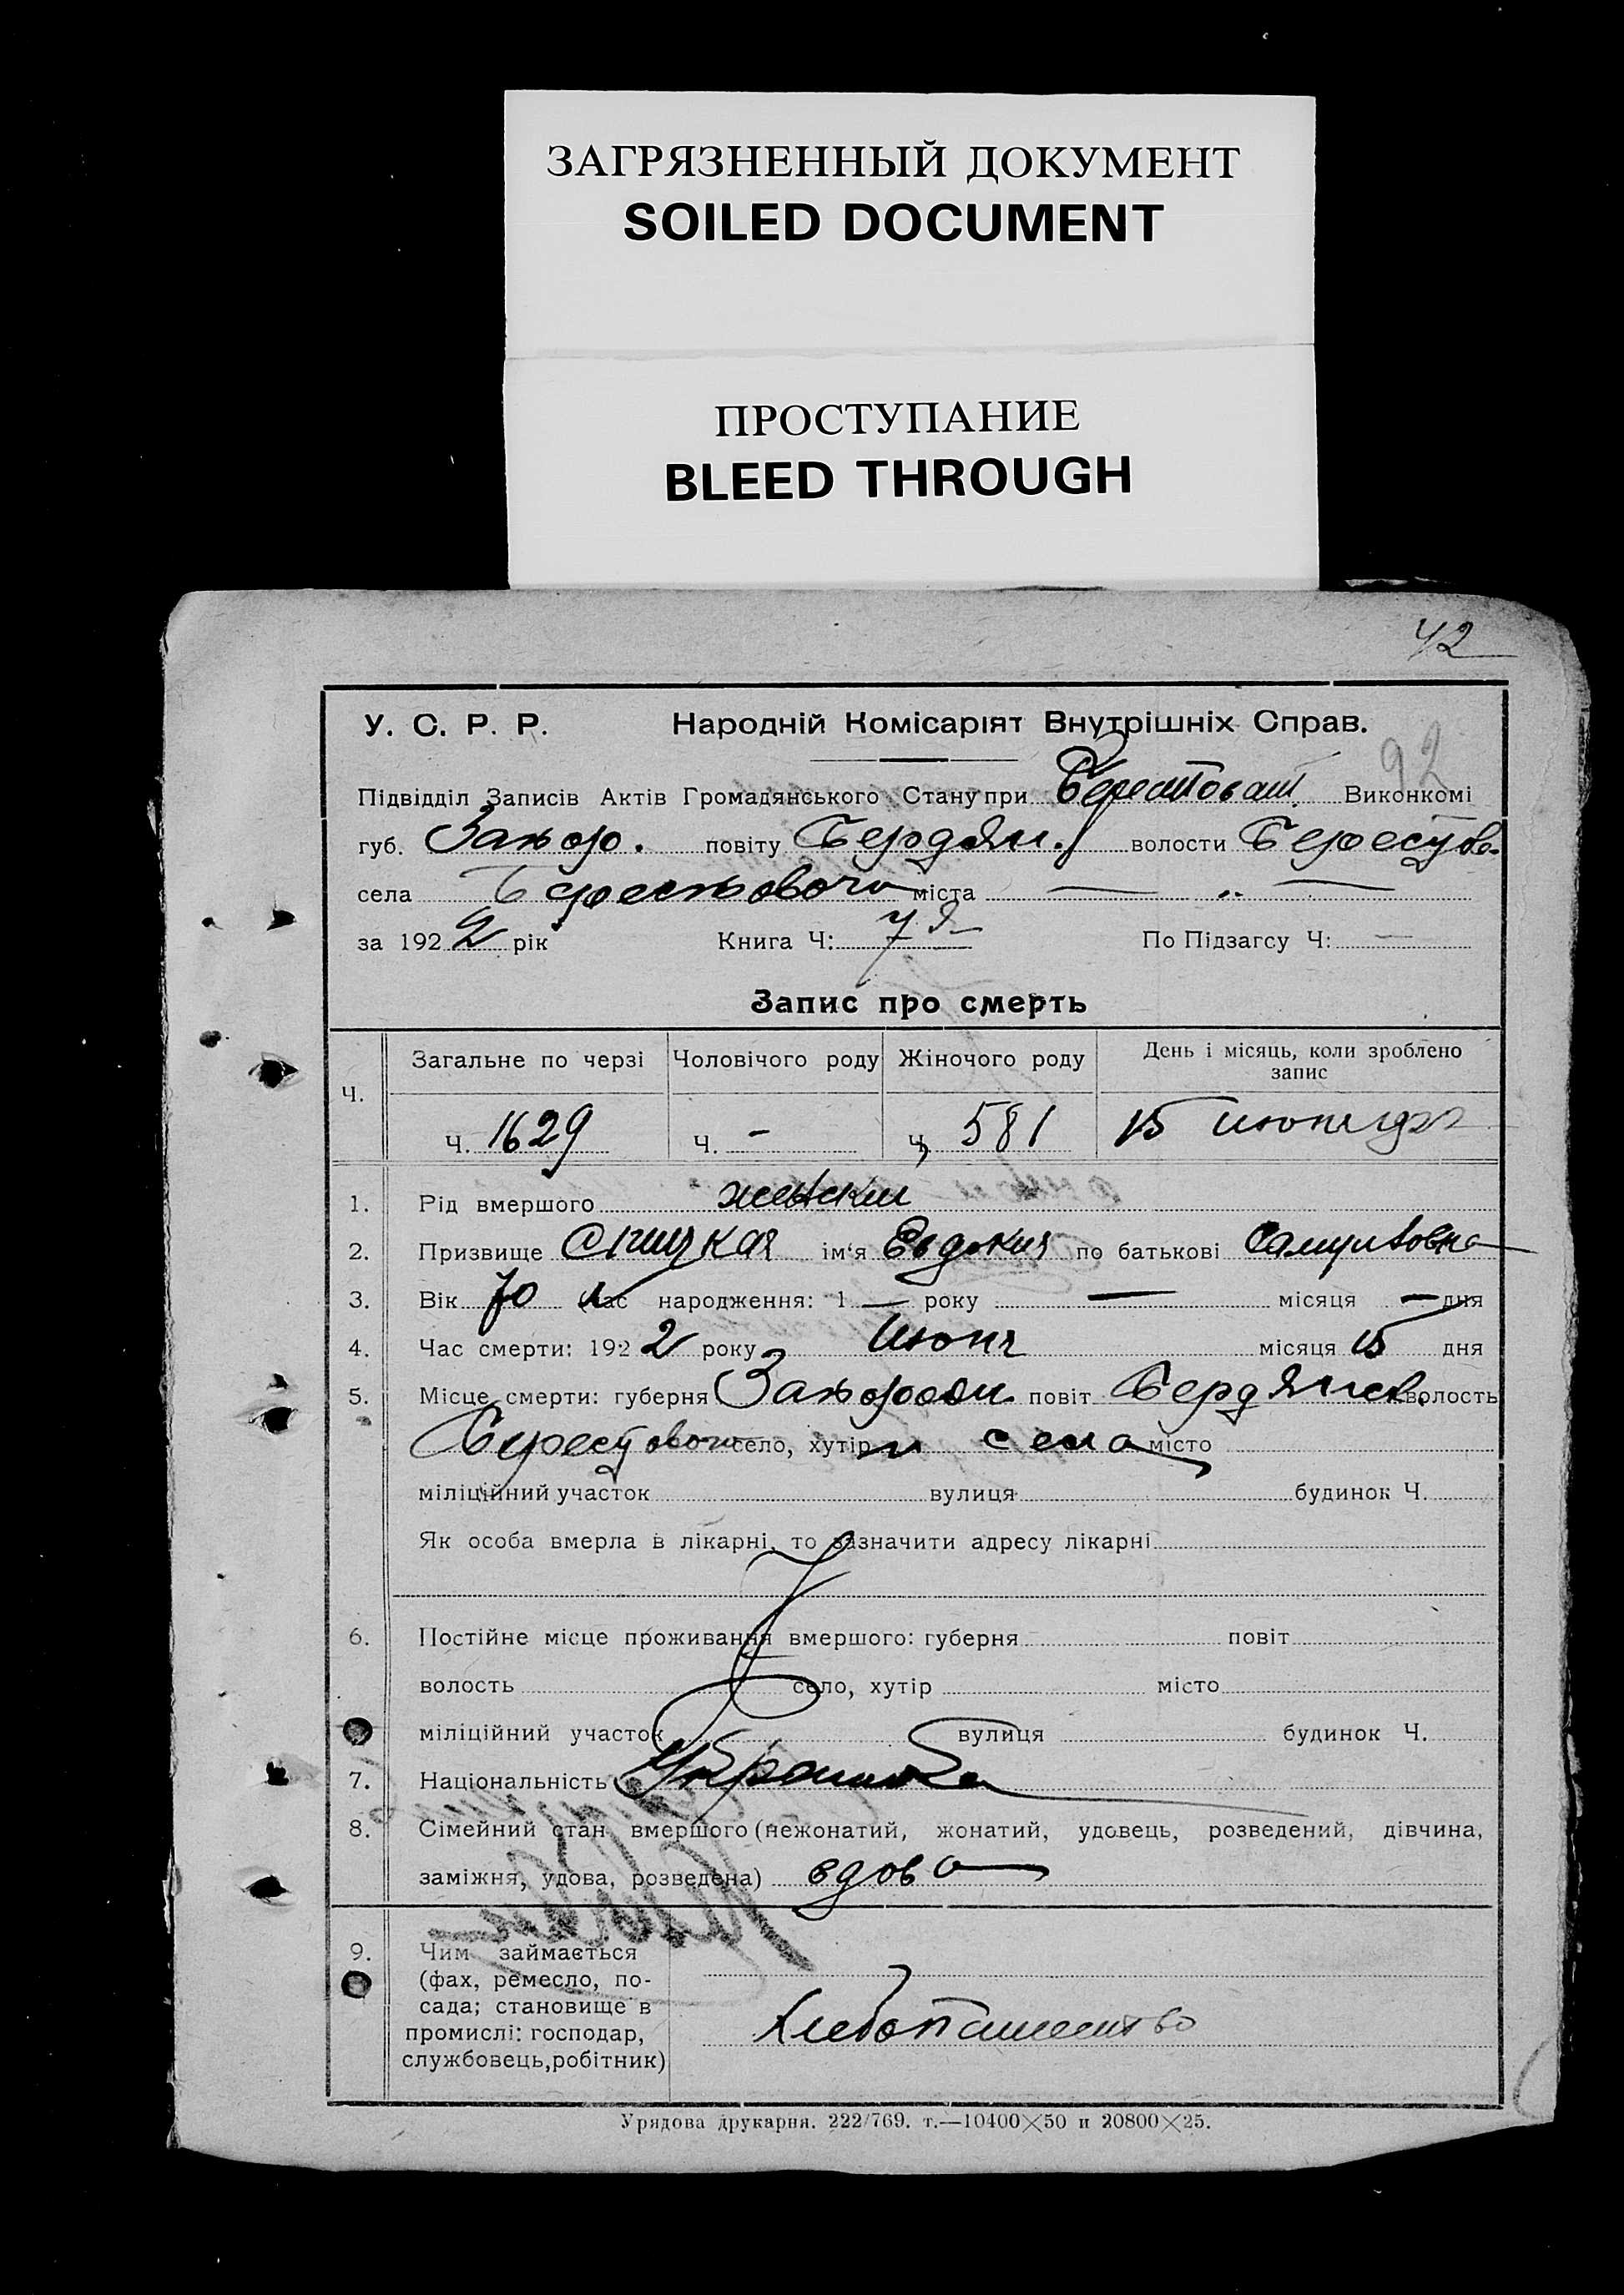 ЗАГРЯЗНЕННЫЙ ДОКУМЕНТ
SOILED DOCUMENT
ПРОСТУПАНИЕ
BLEED THROUGH
42
У. С. Р. Р. Народній Комісаріят Внутрішніх Справ.
92
Підвідділ Записів Актів Громадянського Стану при Берестоват. Виконкомі
губ. Запор. повіту Бердян. волости Берестов.
села Берестового міста —
за 1922 рік Книга Ч: 7я По Підзагсу Ч: —
Запис про смерть
Ч. Загальне по черзі Чоловічого роду Жіночого роду День і місяць, коли зроблено запис
Ч. 1629 Ч. – Ч. 581 15 июня 1922
1. Рід вмершого женский
2. Призвище ім'я Евдокия по батькові Самуиловна
3. Вік 70 л Час народження: 1 — року — місяця — дня
4. Час смерти: 1922 року Июня місяця 15 дня
5. Місце смерти: губерня Запорожн. повіт Бердянск. волость
Берестового село, хутір села місто
міліційний участок вулиця будинок Ч.
Як особа вмерла в лікарні, то зазначити адресу лікарні
6. Постійне місце проживання вмершого: губерня повіт
волость село, хутір місто
міліційний участок вулиця будинок Ч.
7. Національність Украинка
8. Сімейний стан вмершого (нежонатий, жонатий, удовець, розведений, дівчина,
заміжня, удова, розведена) вдова
9. Чим займається
(фах, ремесло, по-
сада; становище в
промислі: господар,
службовець, робітник)
Хлебопашество
Урядова друкарня. 222/769. т.—10400×50 и 20800×25.